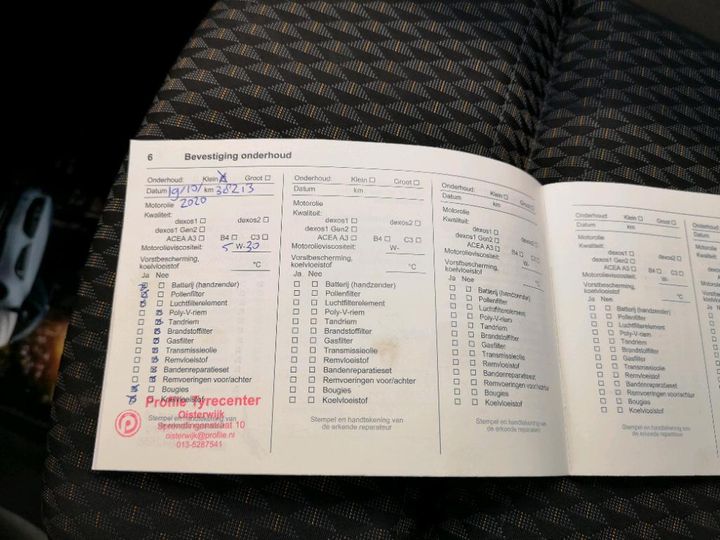 6 Bevestiging onderhoud
Onderhoud: Klein Groot
Datum 19/10/ km 38213
2020
Motorolie
Kwaliteit:
dexos1 dexos2
dexos1 Gen2
ACEA A3 B4 C3
Motorolieviscositeit: 5 W-30
Vorstbescherming,
koelvloeistof °C
Ja Nee
Batterij (handzender)
Pollenfilter
Luchtfilterelement
Poly-V-riem
Tandriem
Brandstoffilter
Gasfilter
Transmissieolie
Remvloeistof
Bandenreparatieset
Remvoeringen voor/achter
Bougies
Koelvloeistof
Profile Tyrecenter
Oisterwijk
Sprendlingenstraat 10
oisterwijk@profile.nl
013-5287541
Stempel en handtekening van
Onderhoud: Klein Groot
Datum km
Motorolie
Kwaliteit:
dexos1 dexos2
dexos1 Gen2
ACEA A3 B4 C3
Motorolieviscositeit: W-
Vorstbescherming,
koelvloeistof °C
Ja Nee
Batterij (handzender)
Pollenfilter
Luchtfilterelement
Poly-V-riem
Tandriem
Brandstoffilter
Gasfilter
Transmissieolie
Remvloeistof
Bandenreparatieset
Remvoeringen voor/achter
Bougies
Koelvloeistof
Stempel en handtekening van
de erkende reparateur
Onderhoud: Klein Groot
Datum km
Motorolie
Kwaliteit:
dexos1 dexos2
dexos1 Gen2
ACEA A3 B4 C3
Motorolieviscositeit: W-
Vorstbescherming,
koelvloeistof °C
Ja Nee
Batterij (handzender)
Pollenfilter
Luchtfilterelement
Poly-V-riem
Tandriem
Brandstoffilter
Gasfilter
Transmissieolie
Remvloeistof
Bandenreparatieset
Remvoeringen voor/achter
Bougies
Koelvloeistof
Stempel en handtekening van
de erkende reparateur
Onderhoud: Klein Groot
Datum km
Motorolie
Kwaliteit:
dexos1 dexos2
dexos1 Gen2
ACEA A3 B4 C3
Motorolieviscositeit: W-
Vorstbescherming,
koelvloeistof °C
Ja Nee
Batterij (handzender)
Pollenfilter
Luchtfilterelement
Poly-V-riem
Tandriem
Brandstoffilter
Gasfilter
Transmissieolie
Remvloeistof
Bandenreparatieset
Remvoeringen voor/achter
Bougies
Koelvloeistof
Stempel en handtekening van
de erkende reparateur
Datum
Motorolie
Ja